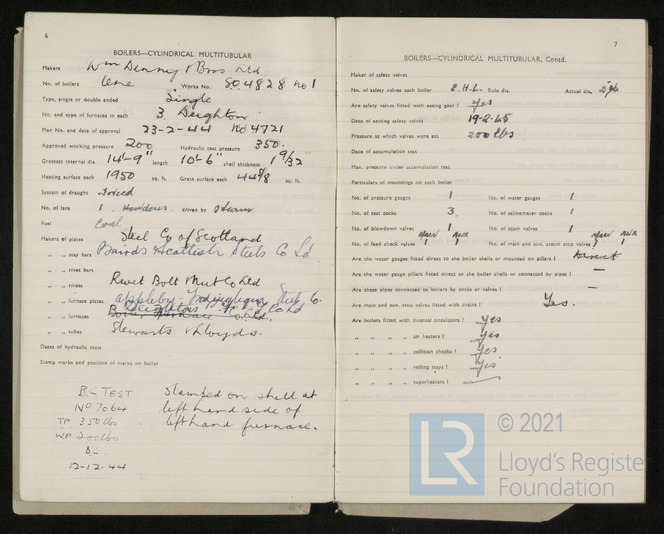 6
BOILERS—CYLINDRICAL MULTITUBULAR
Makers Wm Denny & Bros Ltd
No. of boilers One Works No. 804828 No 1
Type, single or double ended Single
No. and type of furnaces in each 3 Deighton
Plan No. and date of approval 23-2-44 No 4721
Approved working pressure 200 Hydraulic test pressure 350.
Greatest internal dia. 14'-9" length 10'-6" shell thickness 1 9/32"
Heating surface each 1950 sq. ft. Grate surface each sq. ft.
System of draught Forced
No. of fans 1. Howdens driven by Steam
Fuel Coal
Makers of plates Steel Co of Scotland
„ „ stay bars Bairds & Scottish Steels Co Ld
„ „ rivet bars
„ „ rivets Rivet Bolt & Nut Co Ltd
„ „ furnace plates Appleby-Frodingham Steel Co.
„ „ furnaces Deightons Co Ld
„ „ tubes Stewarts & Lloyds.
Dates of hydraulic tests
Stamp marks and position of marks on boiler
B.C TEST
No 7064
TP 350 lbs
W.P 200 lbs
12-12-44
Stamped on shell at
left hand side of
left hand furnace.
7
BOILERS—CYLINDRICAL MULTITUBULAR, Contd.
Maker of safety valves
No. of safety valves each boiler Rule dia. Actual dia.
Are safety valves fitted with easing gear? Yes
Date of setting safety valves 19-2-45
Pressure at which valves were set 200 lbs
Date of accumulation test
Max. pressure under accumulation test
Particulars of mountings on each boiler
No. of pressure gauges 1 No. of water gauges 1
No. of test cocks 3. No. of salinometer cocks 1
No. of blowdown valves 1 No. of scum valves 1
MAIN AUX MAIN AUX
No. of feed check valves 1 1 No. of main and aux. steam stop valves 1 1
Are the water gauges fitted direct to the boiler shells or mounted on pillars? Direct
Are the water gauge pillars fitted direct to the boiler shells or connected by pipes? —
Are these pipes connected to boilers by cocks or valves? —
Are main and aux. stop valves fitted with drains? Yes.
Are boilers fitted with internal circulators? Yes
„ „ „ „ air heaters? Yes
„ „ „ „ collision chocks? Yes
„ „ „ „ rolling stays? Yes
„ „ „ „ superheaters? —
LR
© 2021
Lloyd's Register
Foundation